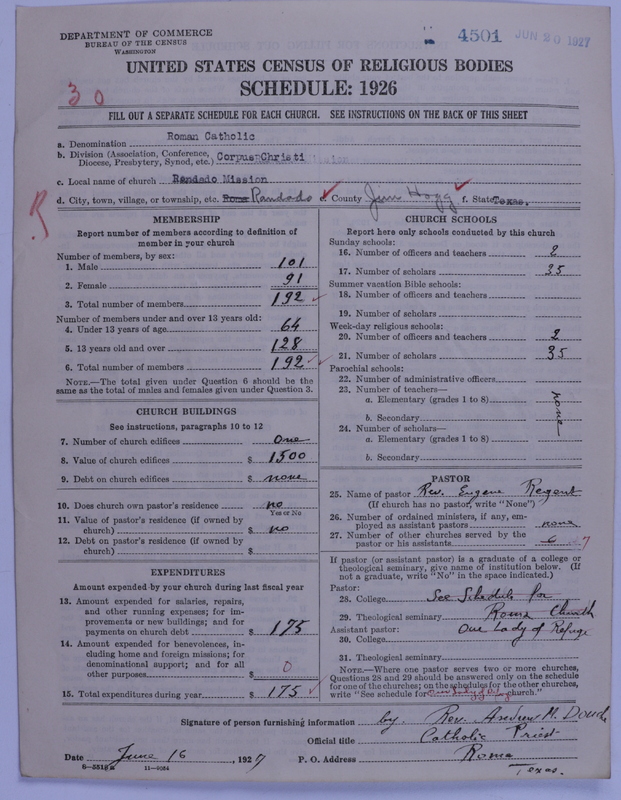 DEPARTMENT OF COMMERCE
BUREAU OF THE CENSUS
WASHINGTON
4501 JUN 20 1927
UNITED STATES CENSUS OF RELIGIOUS BODIES
SCHEDULE: 1926
30
FILL OUT A SEPARATE SCHEDULE FOR EACH CHURCH. SEE INSTRUCTIONS ON THE BACK OF THIS SHEET
a. Denomination Roman Catholic
b. Division (Association, Conference, Diocese, Presbytery, Synod, etc.) Corpus Christi
c. Local name of church Randado Mission
d. City, town, village, or township, etc. Roma Randado e. County Jim Hogg f. State Texas.
R
MEMBERSHIP
Report number of members according to definition of member in your church
Number of members, by sex:
1. Male 101
2. Female 91
3. Total number of members 192
Number of members under and over 13 years old:
4. Under 13 years of age 64
5. 13 years old and over 128
6. Total number of members 192
NOTE.—The total given under Question 6 should be the same as the total of males and females given under Question 3.
CHURCH BUILDINGS
See instructions, paragraphs 10 to 12
7. Number of church edifices One
8. Value of church edifices $ 1500
9. Debt on church edifices $ none
10. Does church own pastor's residence no
Yes or No
11. Value of pastor's residence (if owned by church) $ no
12. Debt on pastor's residence (if owned by church) $
EXPENDITURES
Amount expended by your church during last fiscal year
13. Amount expended for salaries, repairs, and other running expenses; for improvements or new buildings; and for payments on church debt $ 175
14. Amount expended for benevolences, including home and foreign missions; for denominational support; and for all other purposes $ 0
15. Total expenditures during year $ 175
CHURCH SCHOOLS
Report here only schools conducted by this church
Sunday schools:
16. Number of officers and teachers 2
17. Number of scholars 35
Summer vacation Bible schools:
18. Number of officers and teachers
19. Number of scholars
Week-day religious schools:
20. Number of officers and teachers 2
21. Number of scholars 35
Parochial schools:
22. Number of administrative officers
23. Number of teachers—
a. Elementary (grades 1 to 8)
b. Secondary
none
24. Number of scholars—
a. Elementary (grades 1 to 8)
b. Secondary
PASTOR
25. Name of pastor Rev. Eugene Regent
(If church has no pastor, write "None")
26. Number of ordained ministers, if any, employed as assistant pastors none
27. Number of other churches served by the pastor or his assistants 6 7
If pastor (or assistant pastor) is a graduate of a college or theological seminary, give name of institution below. (If not a graduate, write "No" in the space indicated.)
Pastor:
28. College See Schedule for
29. Theological seminary Roma Church
Assistant pastor: Our Lady of Refuge
30. College
31. Theological seminary
NOTE.—Where one pastor serves two or more churches, Questions 28 and 29 should be answered only on the schedule for one of the churches; on the schedules for the other churches, write "See schedule for church."
Signature of person furnishing information by Rev. Andrew M.
Official title Catholic Priest
Date June 16, 1927 P. O. Address Roma
Texas.
11—9034